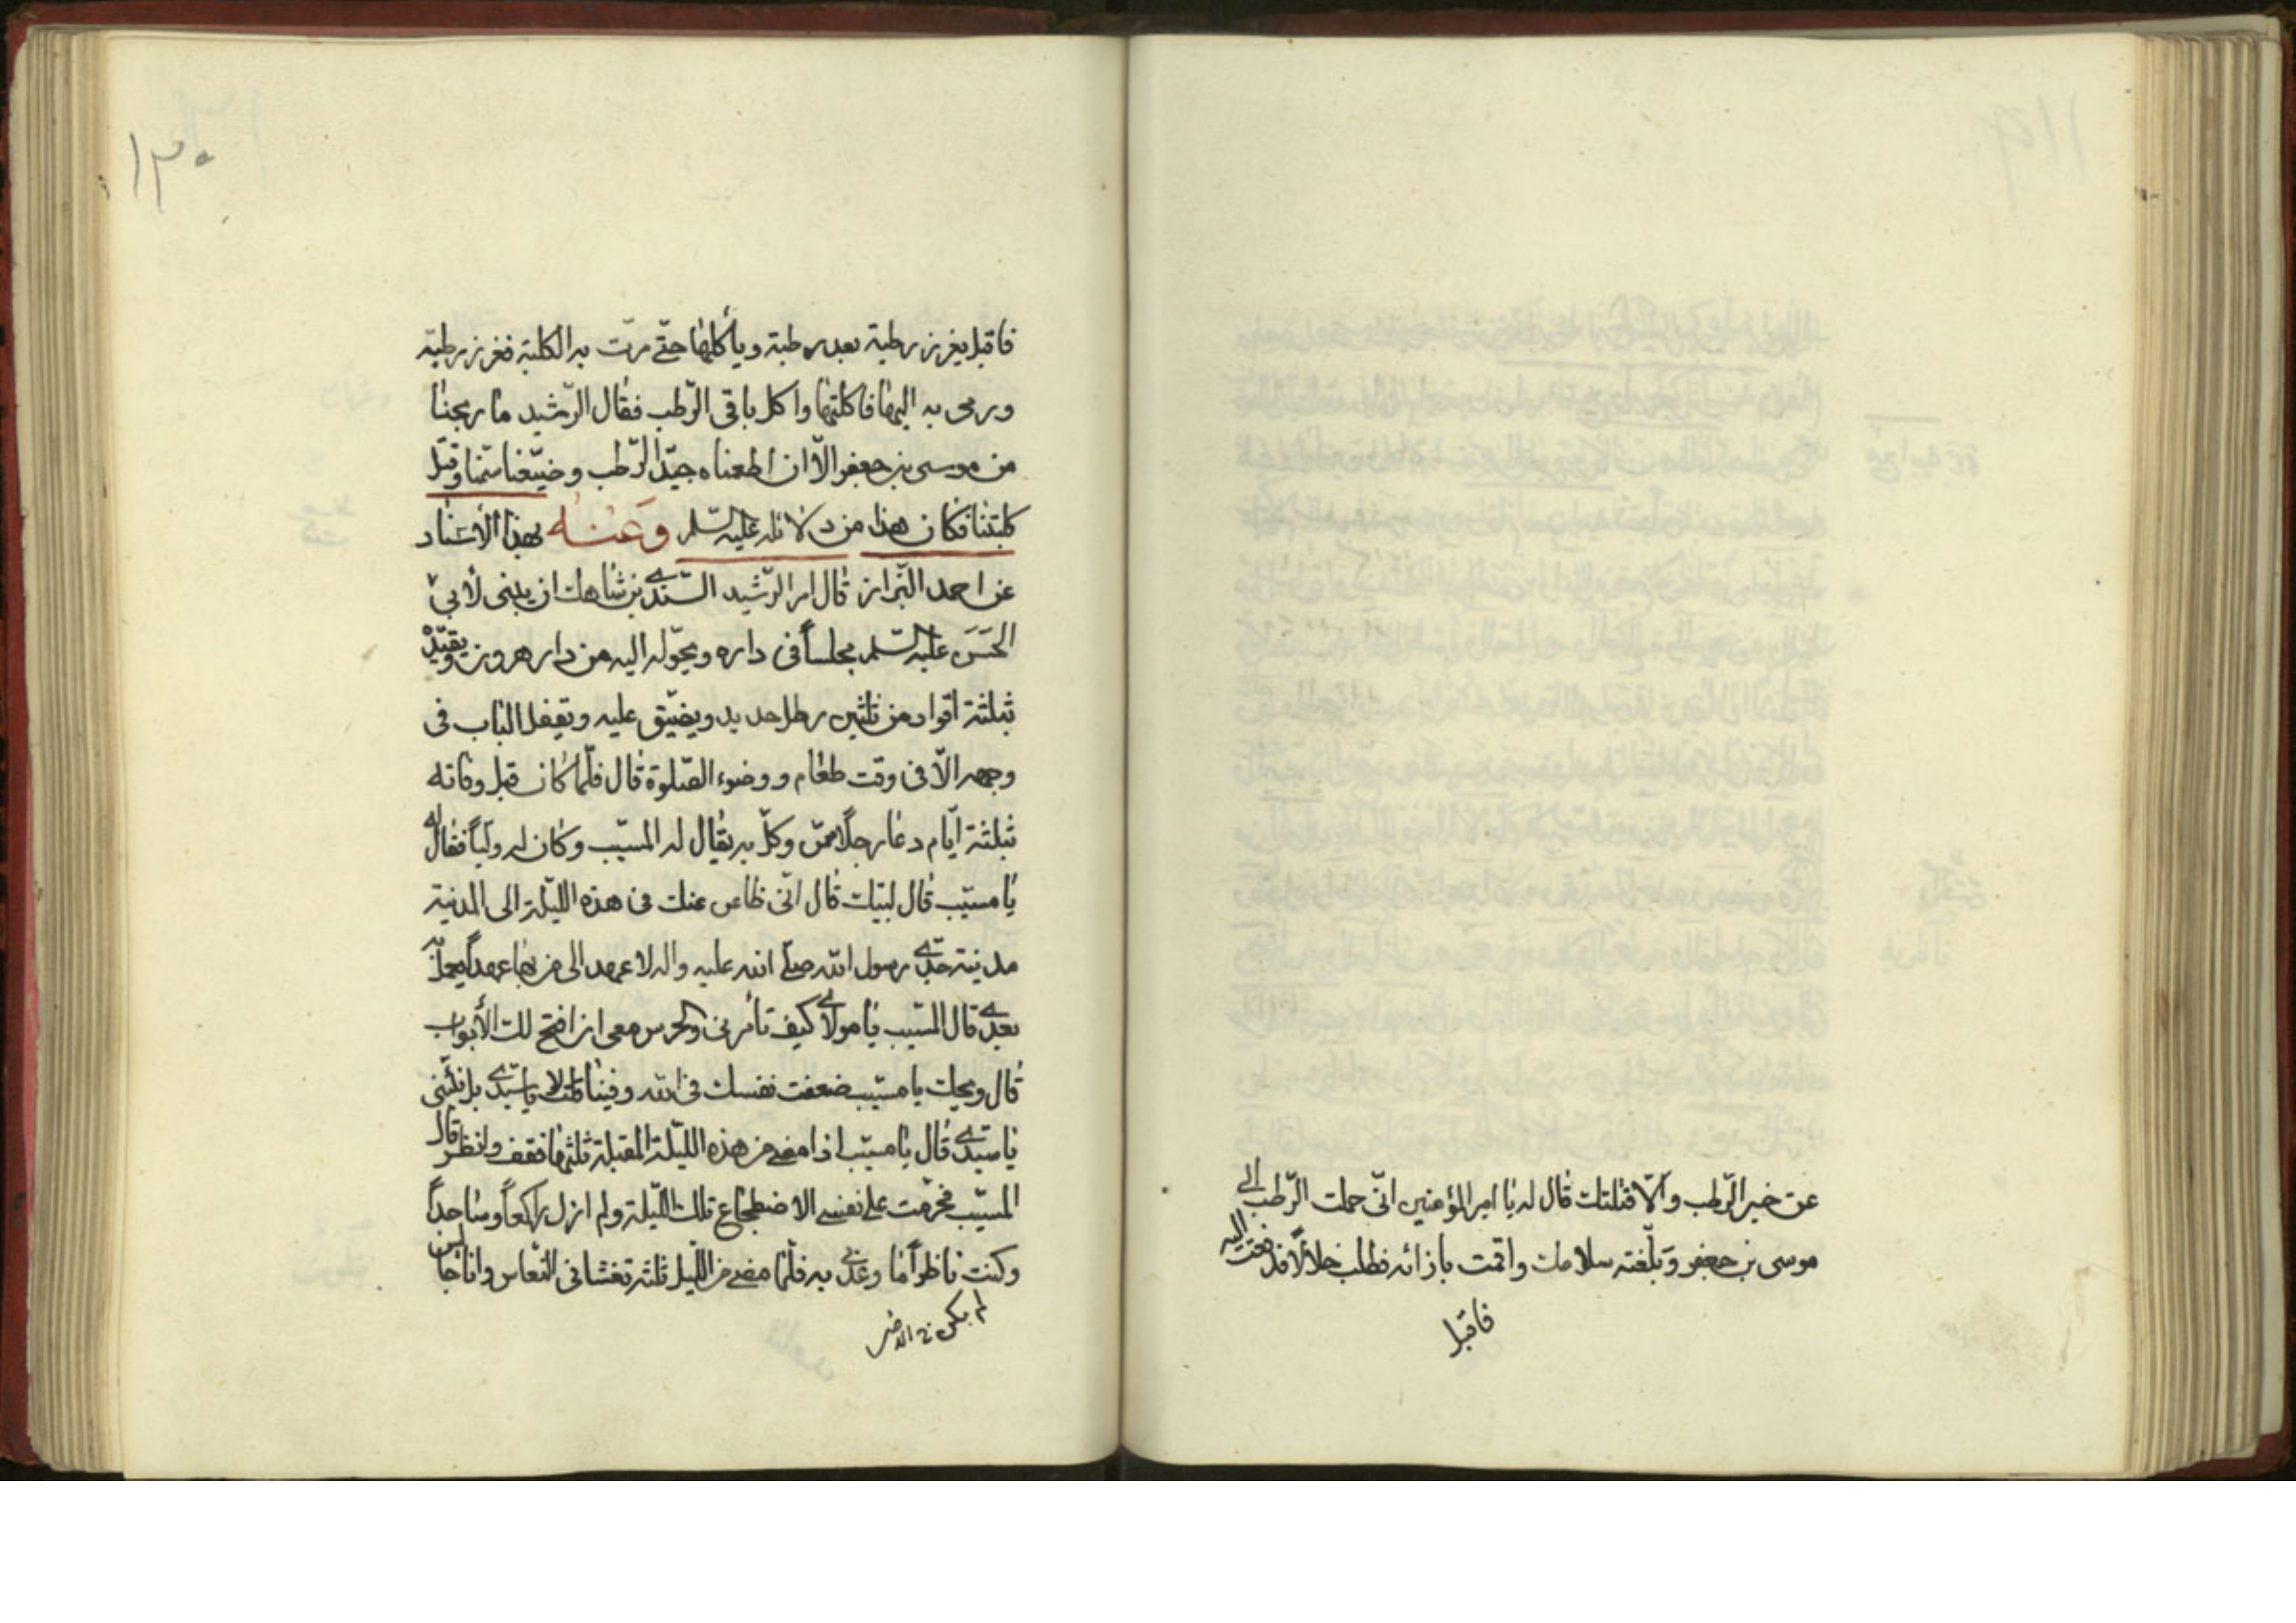 عن خبر الرّطب والّا قتلتك قال له يا امير المؤمنين انّى حملت الرّطب الى
موسى بن جعفر وبلّغته سلامك واقمت بازائه فطلب خلالاً فدفعت اليه
فاقبل
١٢٠
فاقبل يغرز رطبة بعد رطبة وياكلها حتّى مرّت به الكلبة فغرز رطبة
ورمى به اليها فاكلتها واكل باقى الرّطب فقال الرّشيد ما ربحنا
من موسى بن جعفر الّا ان اطعمناه جيّد الرّطب وضيّعنا سمّنا وقتل
كلبتنا فكان هذا من دلائله عليه السّلم وعنه بهذا الأسناد
عن احمد البّزاز قال امر الرّشيد السّندى بن شاهك ان يبنى لأبى
الحسن عليه السّلم مجلساً فى داره ويحوّله اليه من دار هرون ويقيّده
بثلثة اقواد من ثلثين رطل حديد ويضيّق عليه ويقفل الباب فى
وجهه الّا فى وقت طعام ووضوء الصّلوة قال فلمّا كان قبل وفاته
بثلثة ايّام دعا رجلاً ممّن وكلّ به يقال له المسيّب وكان له وليّاً فقال له
يا مسيّب قال لبّيك قال انّى ظاعن عنك فى هذه اللّيلة الى المدينة
مدينة جدّى رسول الله صلى الله عليه واله لاعهد الى من بها عهداً يعمل به
بعدى قال المسيب يا مولاى كيف تأمرنى والحرس معى ان افتح لك الأبواب
قال ويحك يا مسيّب ضعفت نفسك فى الله وفينا قلت لا يا سيّدى بل نبّئنى
يا سيّدى قال يا مسيّب اذا مضى من هذه اللّيلة المقبلة ثلثها فقف وانظر قال
المسيّب فحرّمت على نفسى الاضطجاع تلك اللّيلة ولم ازل راكعاً وساجداً
وكنت ناظراً ما وعدنى به فلمّا مضى من اللّيل ثلثه تغشانى النّعاس وانا جالس